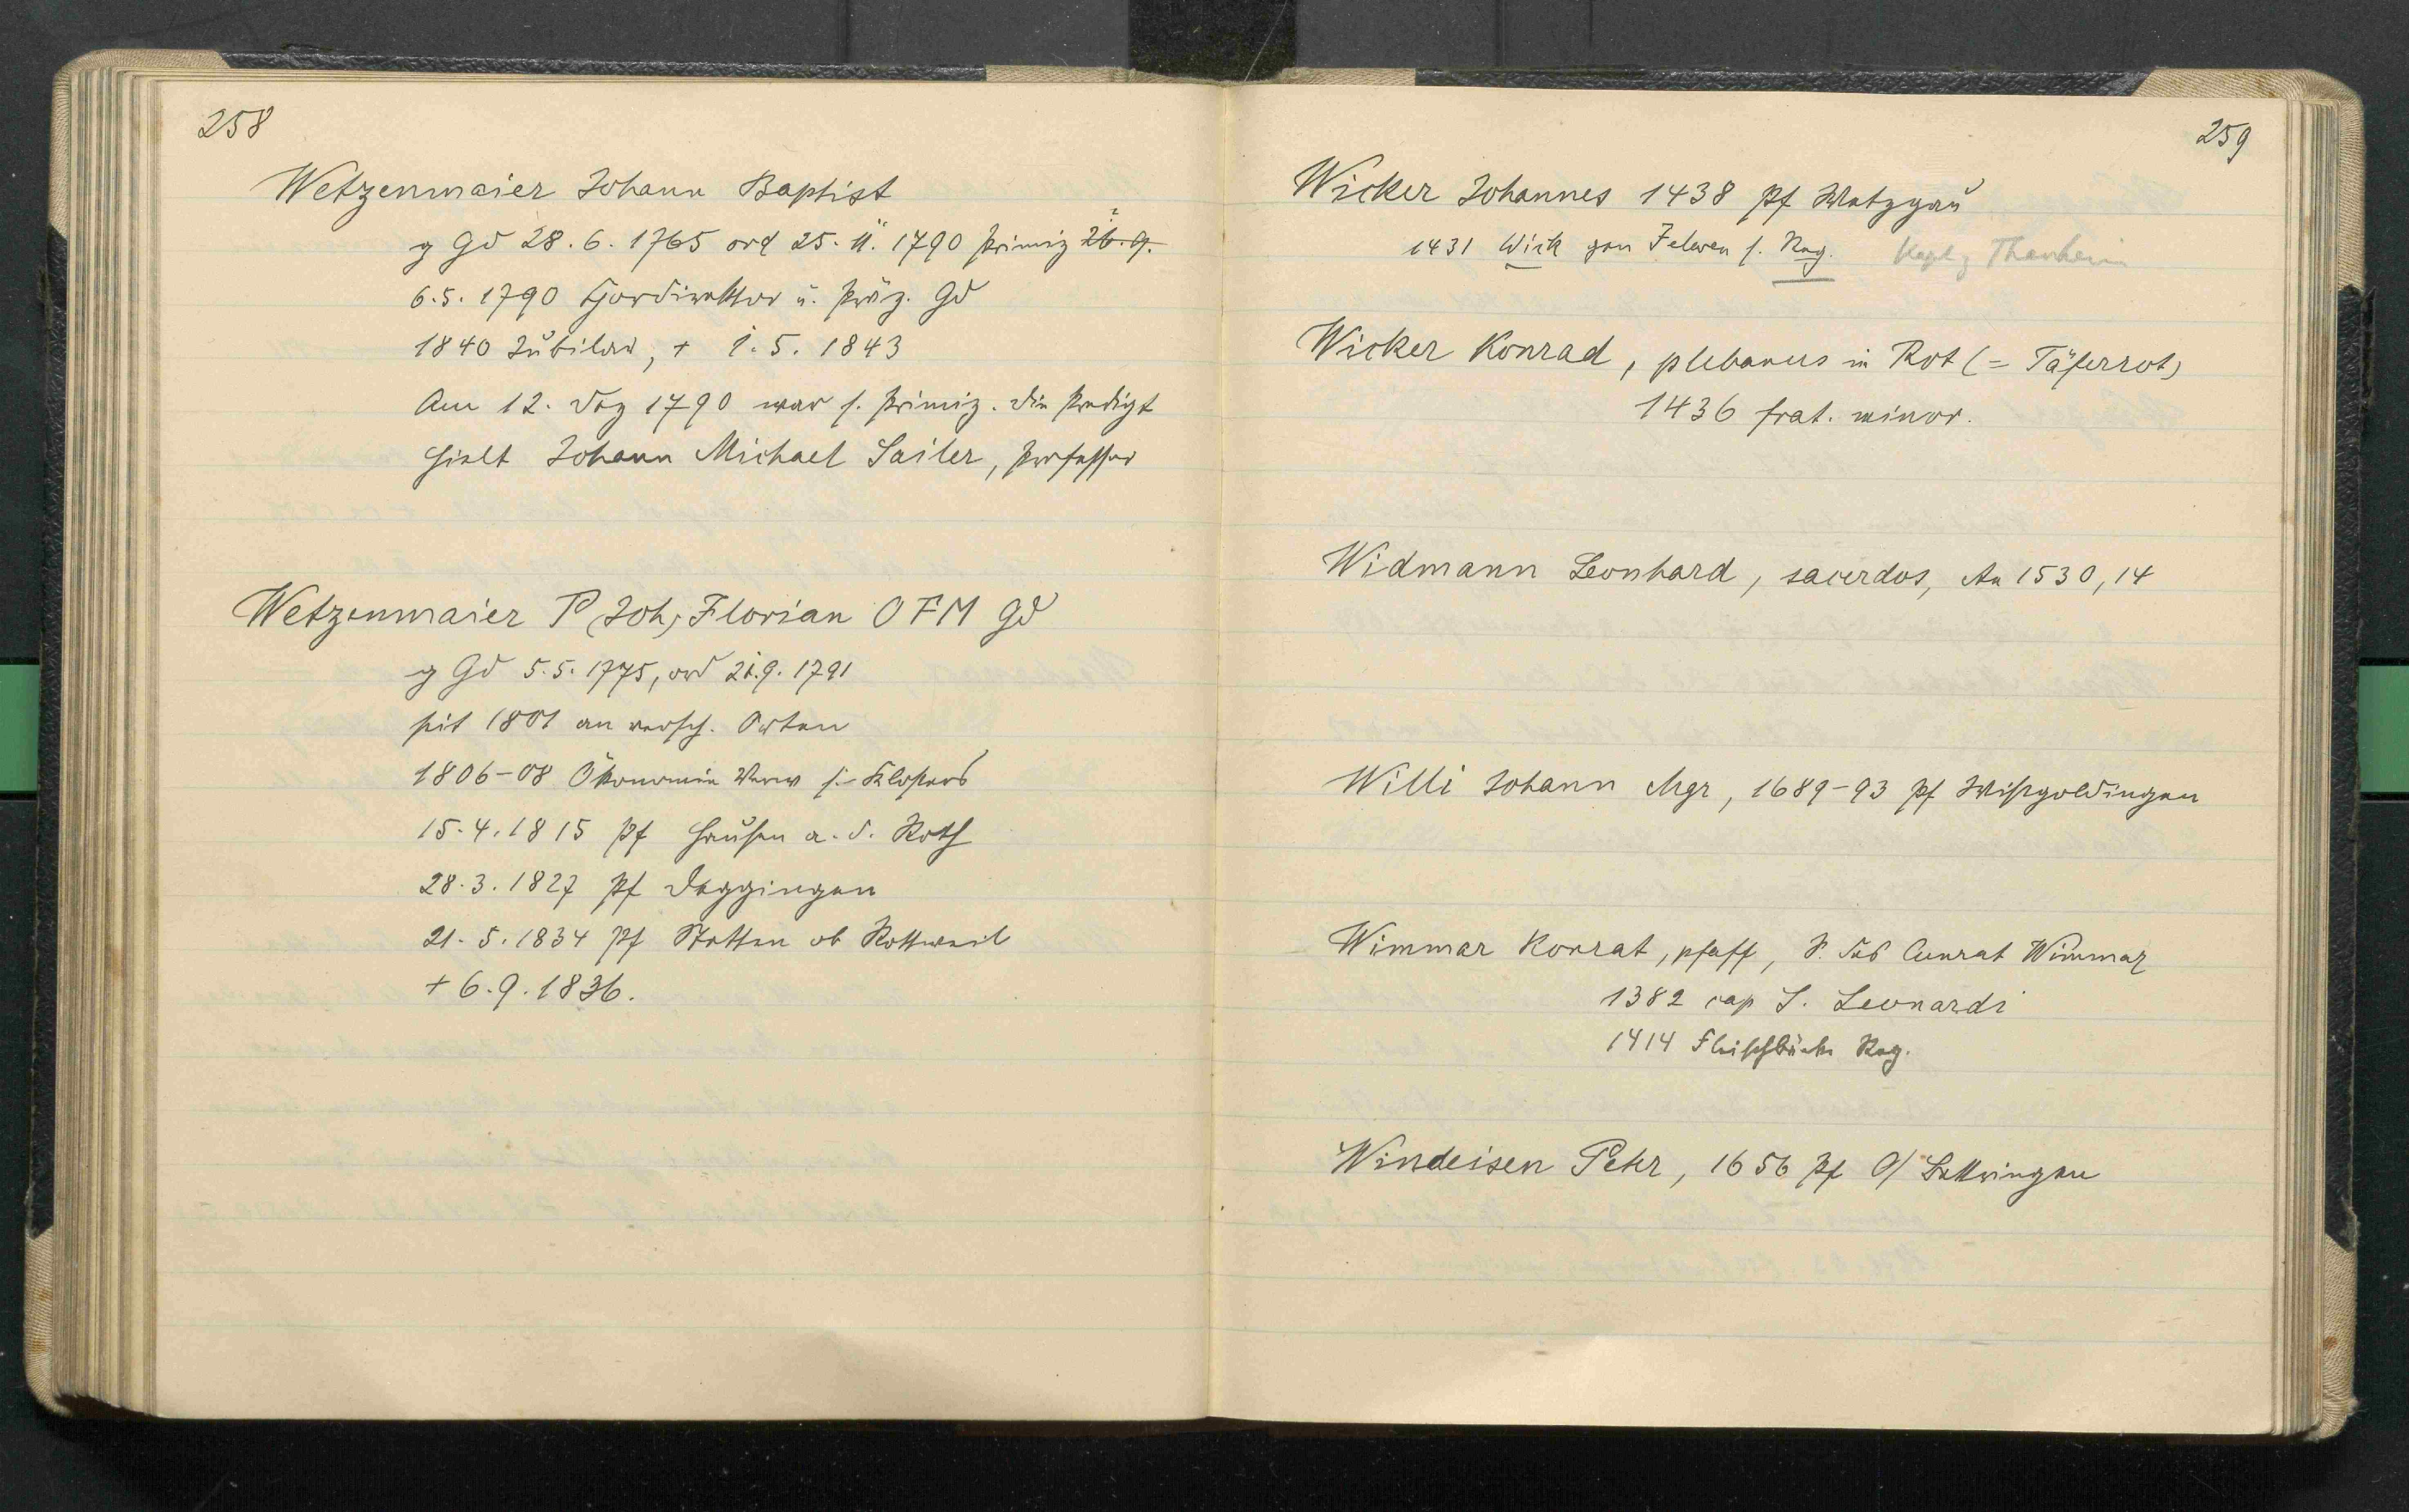 258
Wetzenmaier Johann Baptist
g Gd 28. 6. 1765 ord 25. 11. 1790 Primiz 26. 9.
6. 5. 1790 Chordirektor u. Präz. Gd
1840 Jubilar, + 1. 5. 1843
Am 12. Dez 1790 war s. Primiz. Die Predigt
hielt Johann Michael Sailer, Professor
Wetzenmaier P (Joh) Florian OFM Gd
g Gd 5. 5. 1775, ord 21. 9. 1791
seit 1801 an versch. Orten
1806-08 Ökonomie Verw s. Klosters
15. 4. 1815 Pf Hausen a. d. Roth
28. 3. 1827 Pf Deggingen
21. 5. 1834 Pf Stetten ob Rottweil
+ 6. 9. 1836.
259
Wicker Johannes 1438 Pf Wetzgau
1431 Wick gen s. Reg. Thanheim
Wicker Konrad, plebanus in Rot (= Täferrot)
1436 frat. minor.
Widmann Leonhard, sacerdos, An 1530, 14
Willi Johann Mgr, 1689-93 Pf Wißgoldingen
Wimmar Konrat, pfaff, S. des Cunrat Wimmar
1382 cap S. Leonardi
1414 Fleischbänke Reg.
Windeisen Peter, 1656 Pf O/Bettringen